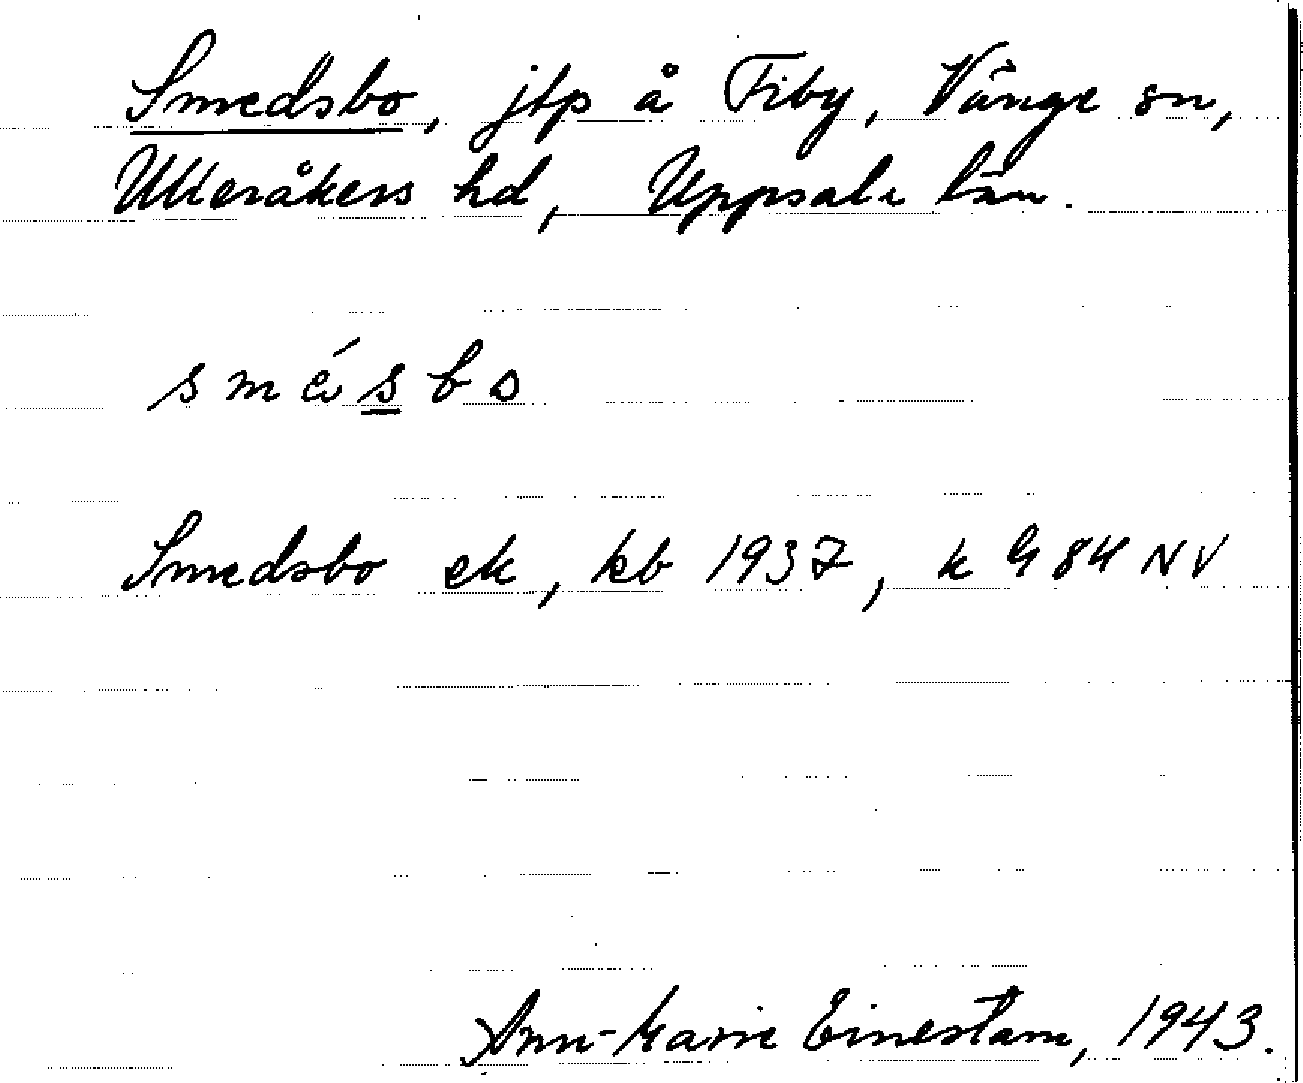 Smedsbo, jtp å Fiby, Vänge sn,
Ulleråkers hd, Uppsala län.
smésbo
Smedsbo ek, kb 1937, k G 84 NV
Ann-Marie Einestam, 1943.